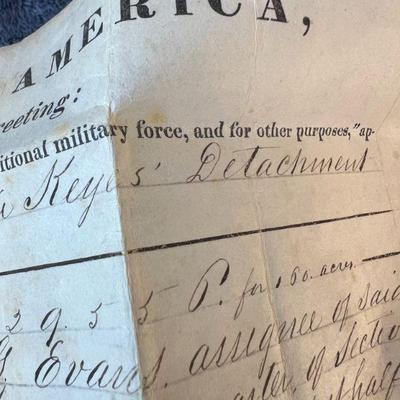 AMERICA,
reeting:
itional military force, and for other purposes," ap-
Keyes' Detachment
2 9. 5 5 P. for 160. acres
Evans. assignee of said